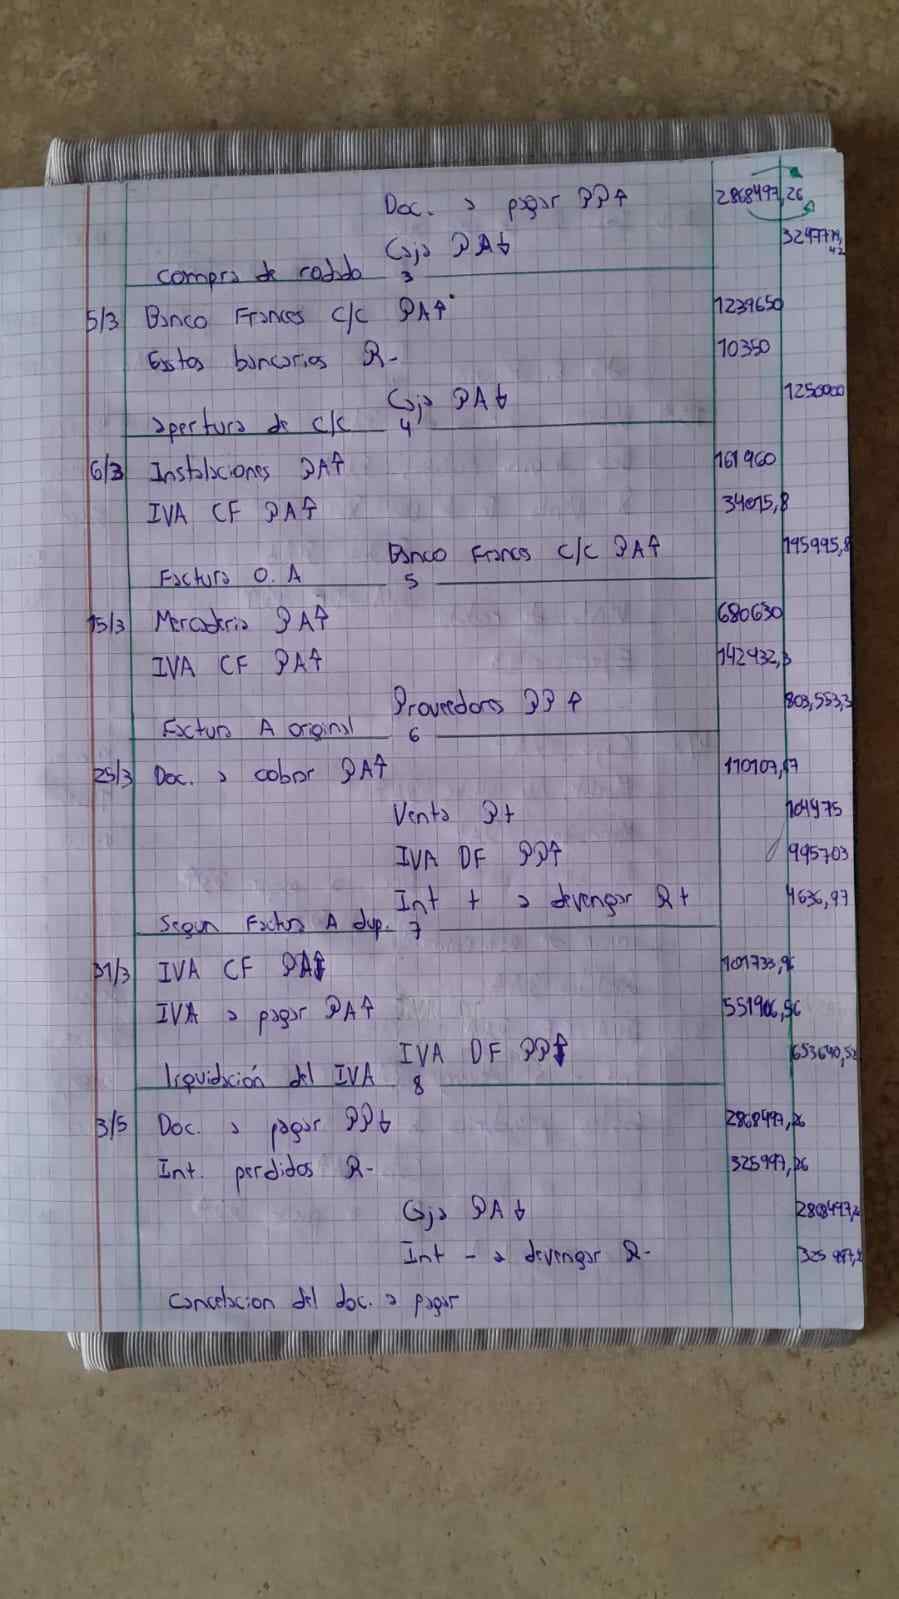 Doc. a pagar PP↑ 2868497,26
Caja PA↓ 3297779,42
compra de rodado 3
5/3 Banco Frances C/C PA↑ 1239650
Gastos bancarios R- 10350
Caja PA↓ 1250000
apertura de c/c 4
6/3 Instalaciones PA↑ 161960
IVA CF PA↑ 34015,8
Banco Frances C/C PA↑ 195995,8
Factura O. A 5
15/3 Mercaderia PA↑ 680630
IVA CF PA↑ 142932,3
Proveedores PP↑ 803,553,3
Factura A original 6
25/3 Doc. a cobrar PA↑ 110107,17
Venta R+ 104975
IVA DF PP↑ 995703
Int + a devengar R+ 4636,97
Segun Factura A dup. 7
31/3 IVA CF PA↑ 101733,96
IVA a pagar PA↑ 551906,56
IVA DF PP↑ 653640,52
liquidación del IVA 8
3/5 Doc. a pagar PP↓ 2868497,26
Int. perdidos R- 325997,26
Caja PA↓ 2868497,2
Int - a devengar R- 325997,2
Cancelacion del doc. a pagar